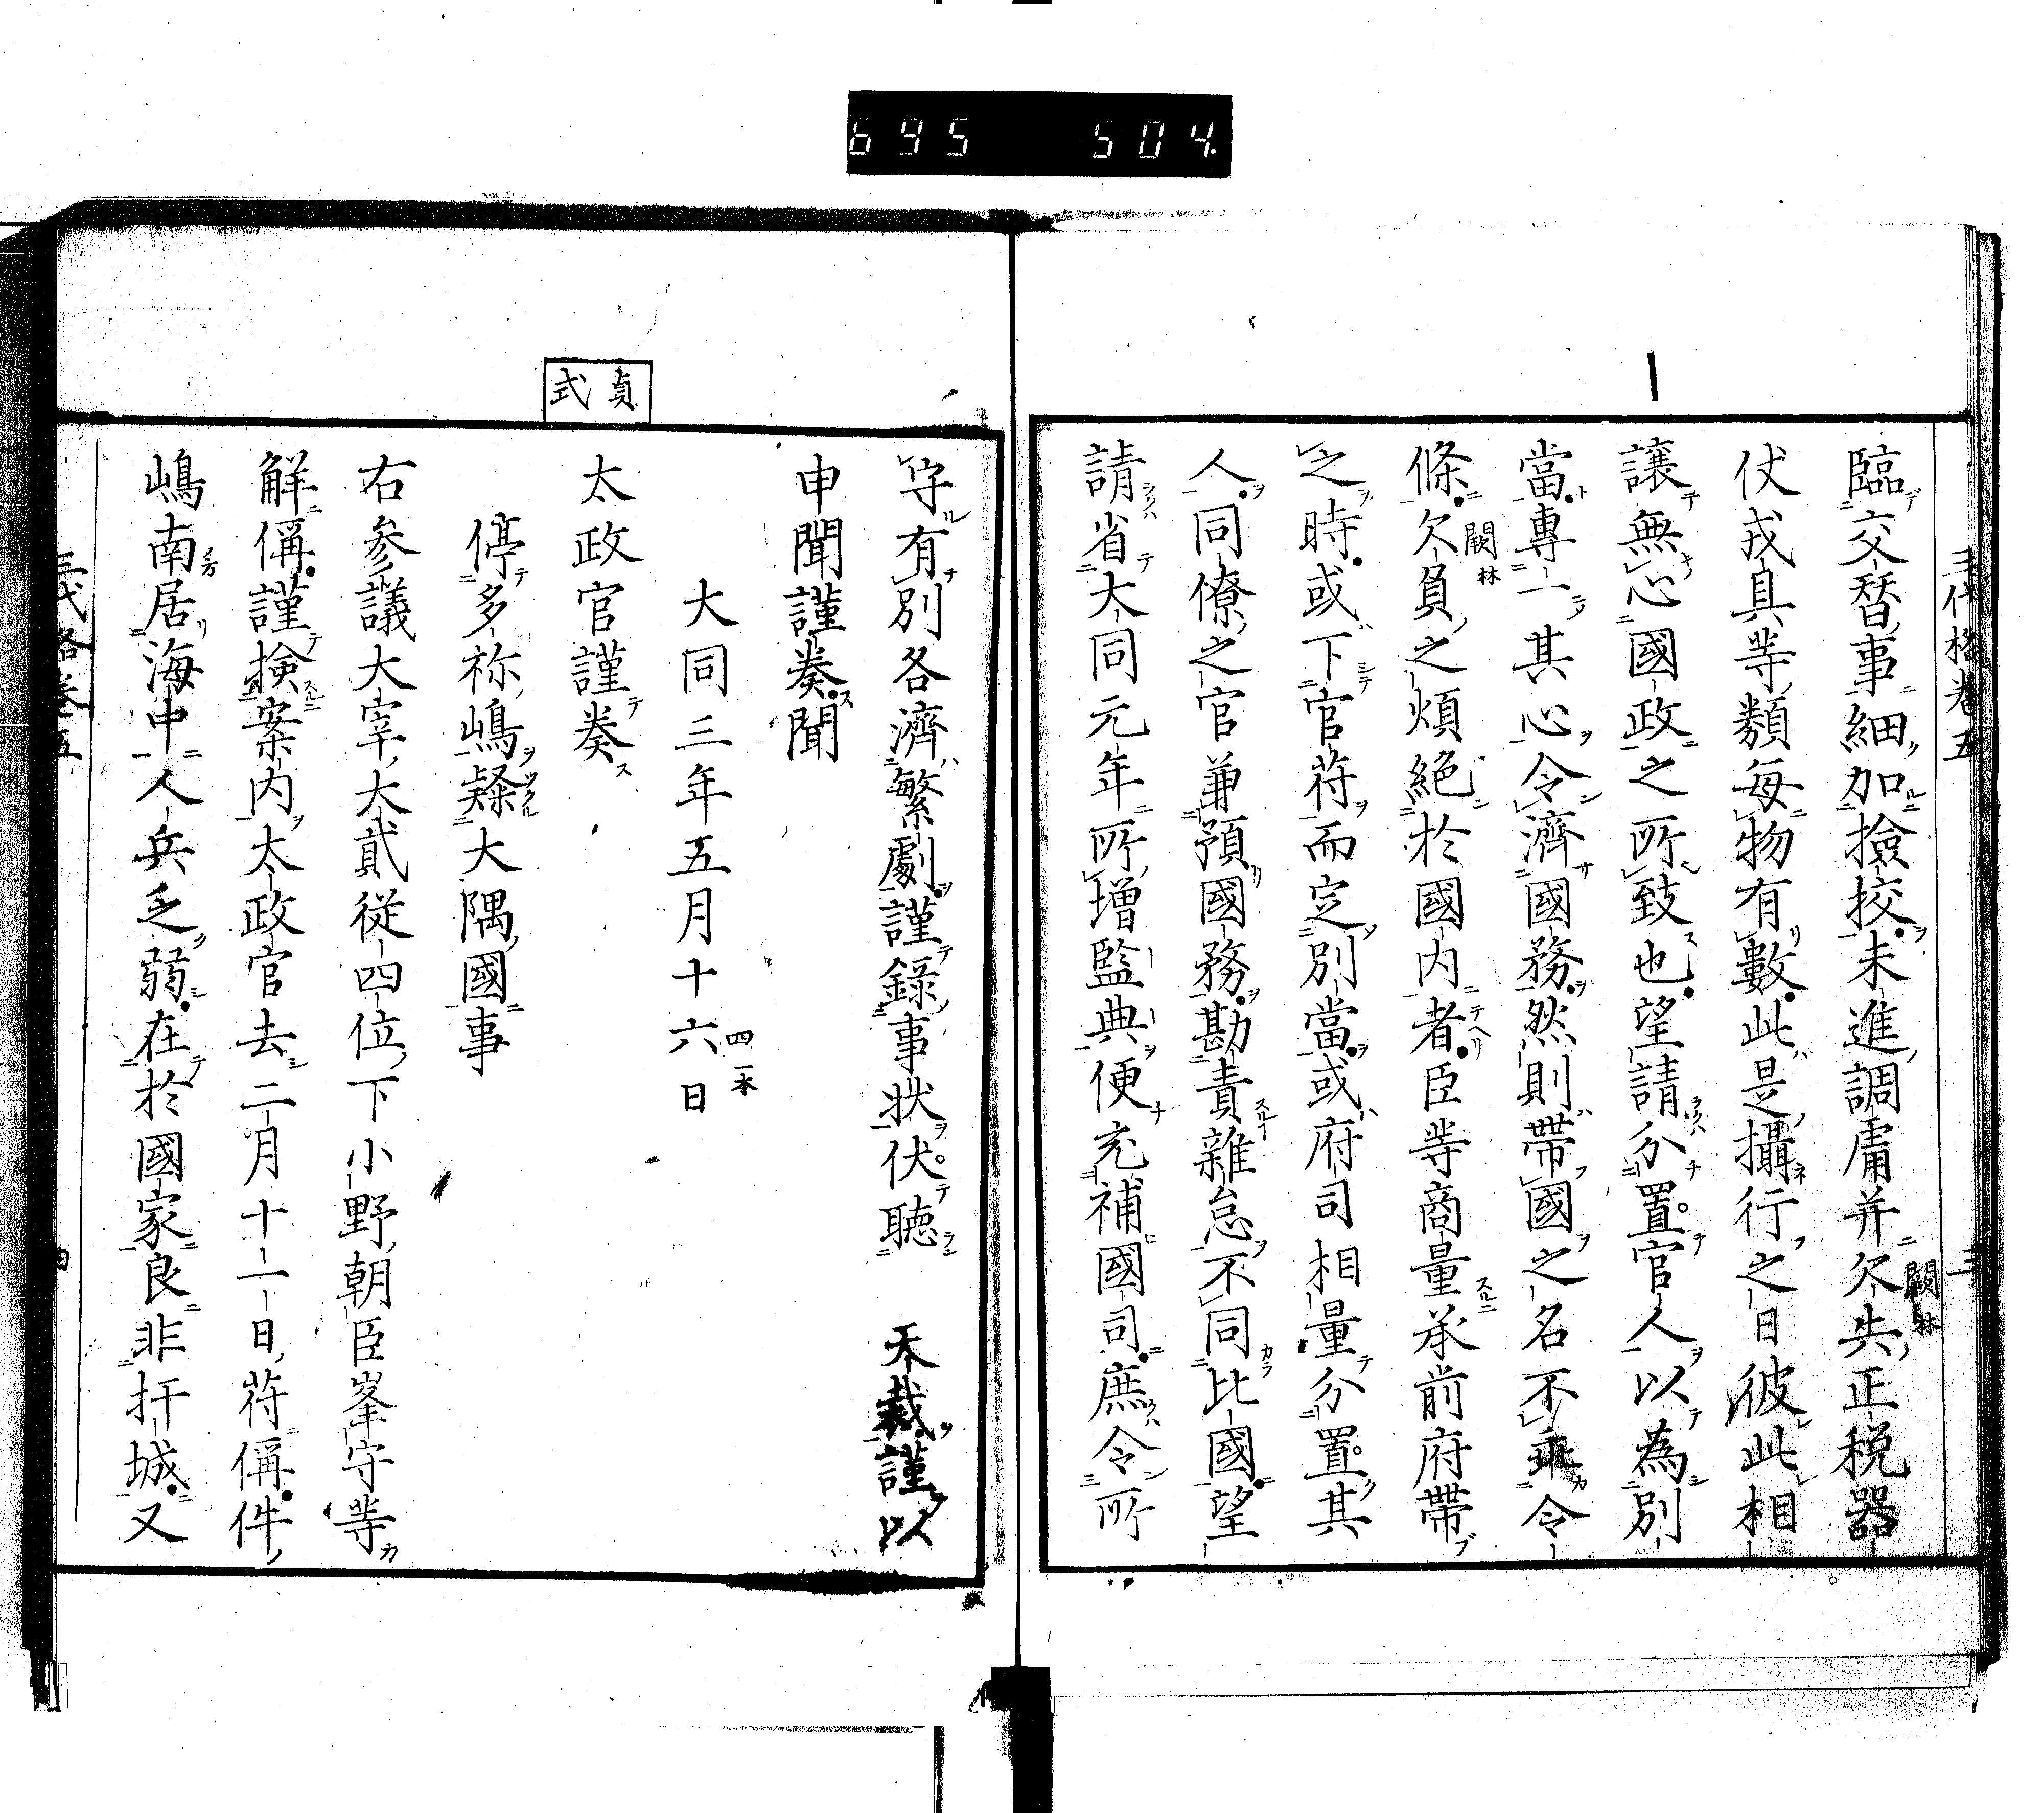 695 504
三代格卷五 三
臨交替事細加撿挍未進調庸并欠失正税器
伏戎具等類每物有數此是攝行之日彼此相
讓無心國政之所致也望請分置官人以為別
當專一其心令濟國務然則帶國之名不乖令
條欠負之煩絶於國内者臣等商量承前府帶
之時或下官符而定別當或府司相量分置其
人同僚之官兼預國務勘責雜怠不同比國望
請省大同元年所增監典便充補國司庶令所
守有別各濟繁劇謹録事狀伏聽 天裁謹以
申聞謹奏聞
大同三年五月十六日
四一本
貞式
太政官謹奏
停多祢嶋隷大隅國事
右参議大宰大貳從四位下小野朝臣峯守等
解偁謹撿案内太政官去二月十一日符偁件
嶋南居海中人兵乏弱在於國家良非扞城又
三代格卷五 四